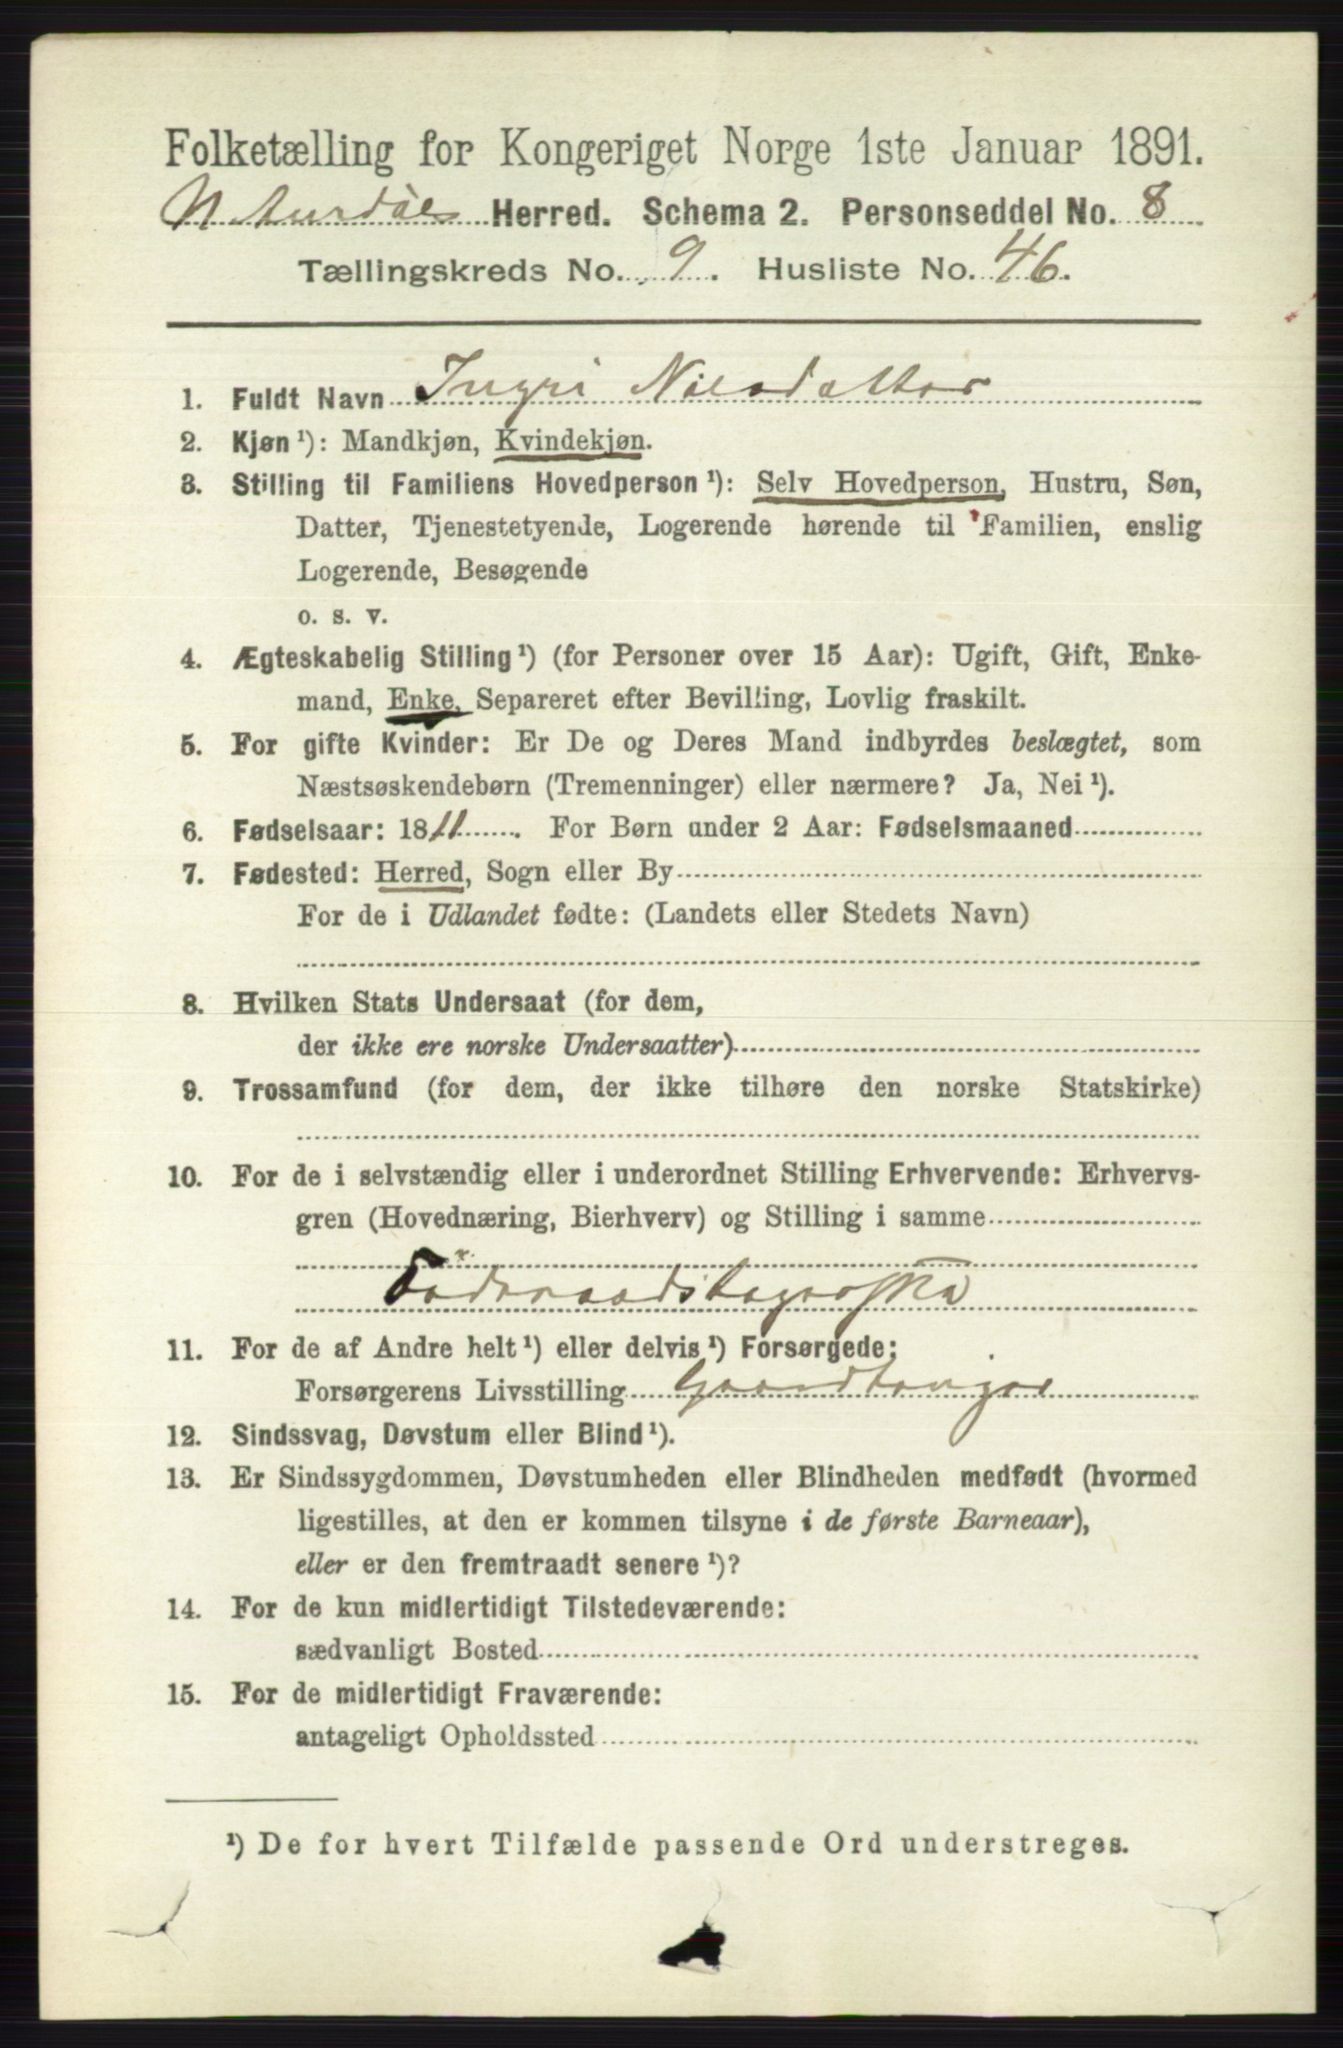 Folketælling for Kongeriget Norge 1ste Januar 1891.
N Aurdal Herred. Schema 2. Personseddel No. 8
Tællingskreds No. 9. Husliste No. 46.
1. Fuldt Navn Ingri Nilsdatter
2. Kjøn ¹): Mandkjøn, Kvindekjøn.
3. Stilling til Familiens Hovedperson ¹): Selv Hovedperson, Hustru, Søn,
Datter, Tjenestetyende, Logerende hørende til Familien, enslig
Logerende, Besøgende
o. s. v.
4. Ægteskabelig Stilling ¹) (for Personer over 15 Aar): Ugift, Gift, Enke-
mand, Enke, Separeret efter Bevilling, Lovlig fraskilt.
5. For gifte Kvinder: Er De og Deres Mand indbyrdes beslægtet, som
Næstsøskendebørn (Tremenninger) eller nærmere? Ja, Nei ¹).
6. Fødselsaar: 1811. For Børn under 2 Aar: Fødselsmaaned
7. Fødested: Herred, Sogn eller By
For de i Udlandet fødte: (Landets eller Stedets Navn)
8. Hvilken Stats Undersaat (for dem,
der ikke ere norske Undersaatter)
9. Trossamfund (for dem, der ikke tilhøre den norske Statskirke)
10. For de i selvstændig eller i underordnet Stilling Erhvervende: Erhvervs-
gren (Hovednæring, Bierhverv) og Stilling i samme
11. For de af Andre helt ¹) eller delvis ¹) Forsørgede:
Forsørgerens Livsstilling Gaardbruger
12. Sindssvag, Døvstum eller Blind ¹).
13. Er Sindssygdommen, Døvstumheden eller Blindheden medfødt (hvormed
ligestilles, at den er kommen tilsyne i de første Barneaar),
eller er den fremtraadt senere ¹)?
14. For de kun midlertidigt Tilstedeværende:
sædvanligt Bosted
15. For de midlertidigt Fraværende:
antageligt Opholdssted
¹) De for hvert Tilfælde passende Ord understreges.